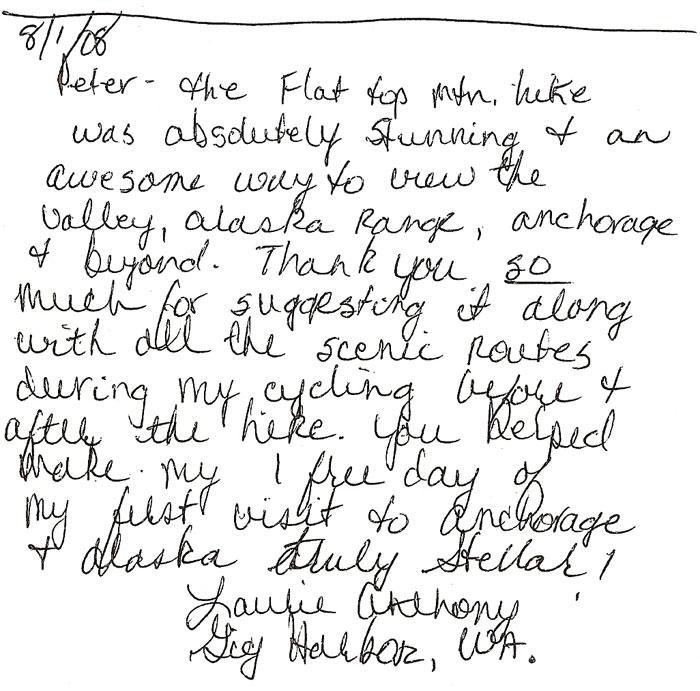 8/1/08
Peter - the Flat top mtn. hike
was absolutely stunning & an
awesome way to view the
valley, alaska Range, anchorage
& beyond. Thank you so
much for suggesting it along
with all the scenic routes
during my cycling before &
after the hike. You helped
make my 1 free day of
my first visit to anchorage
& alaska truly stellar!
Laurie Anthony
Gig Harbor, WA.